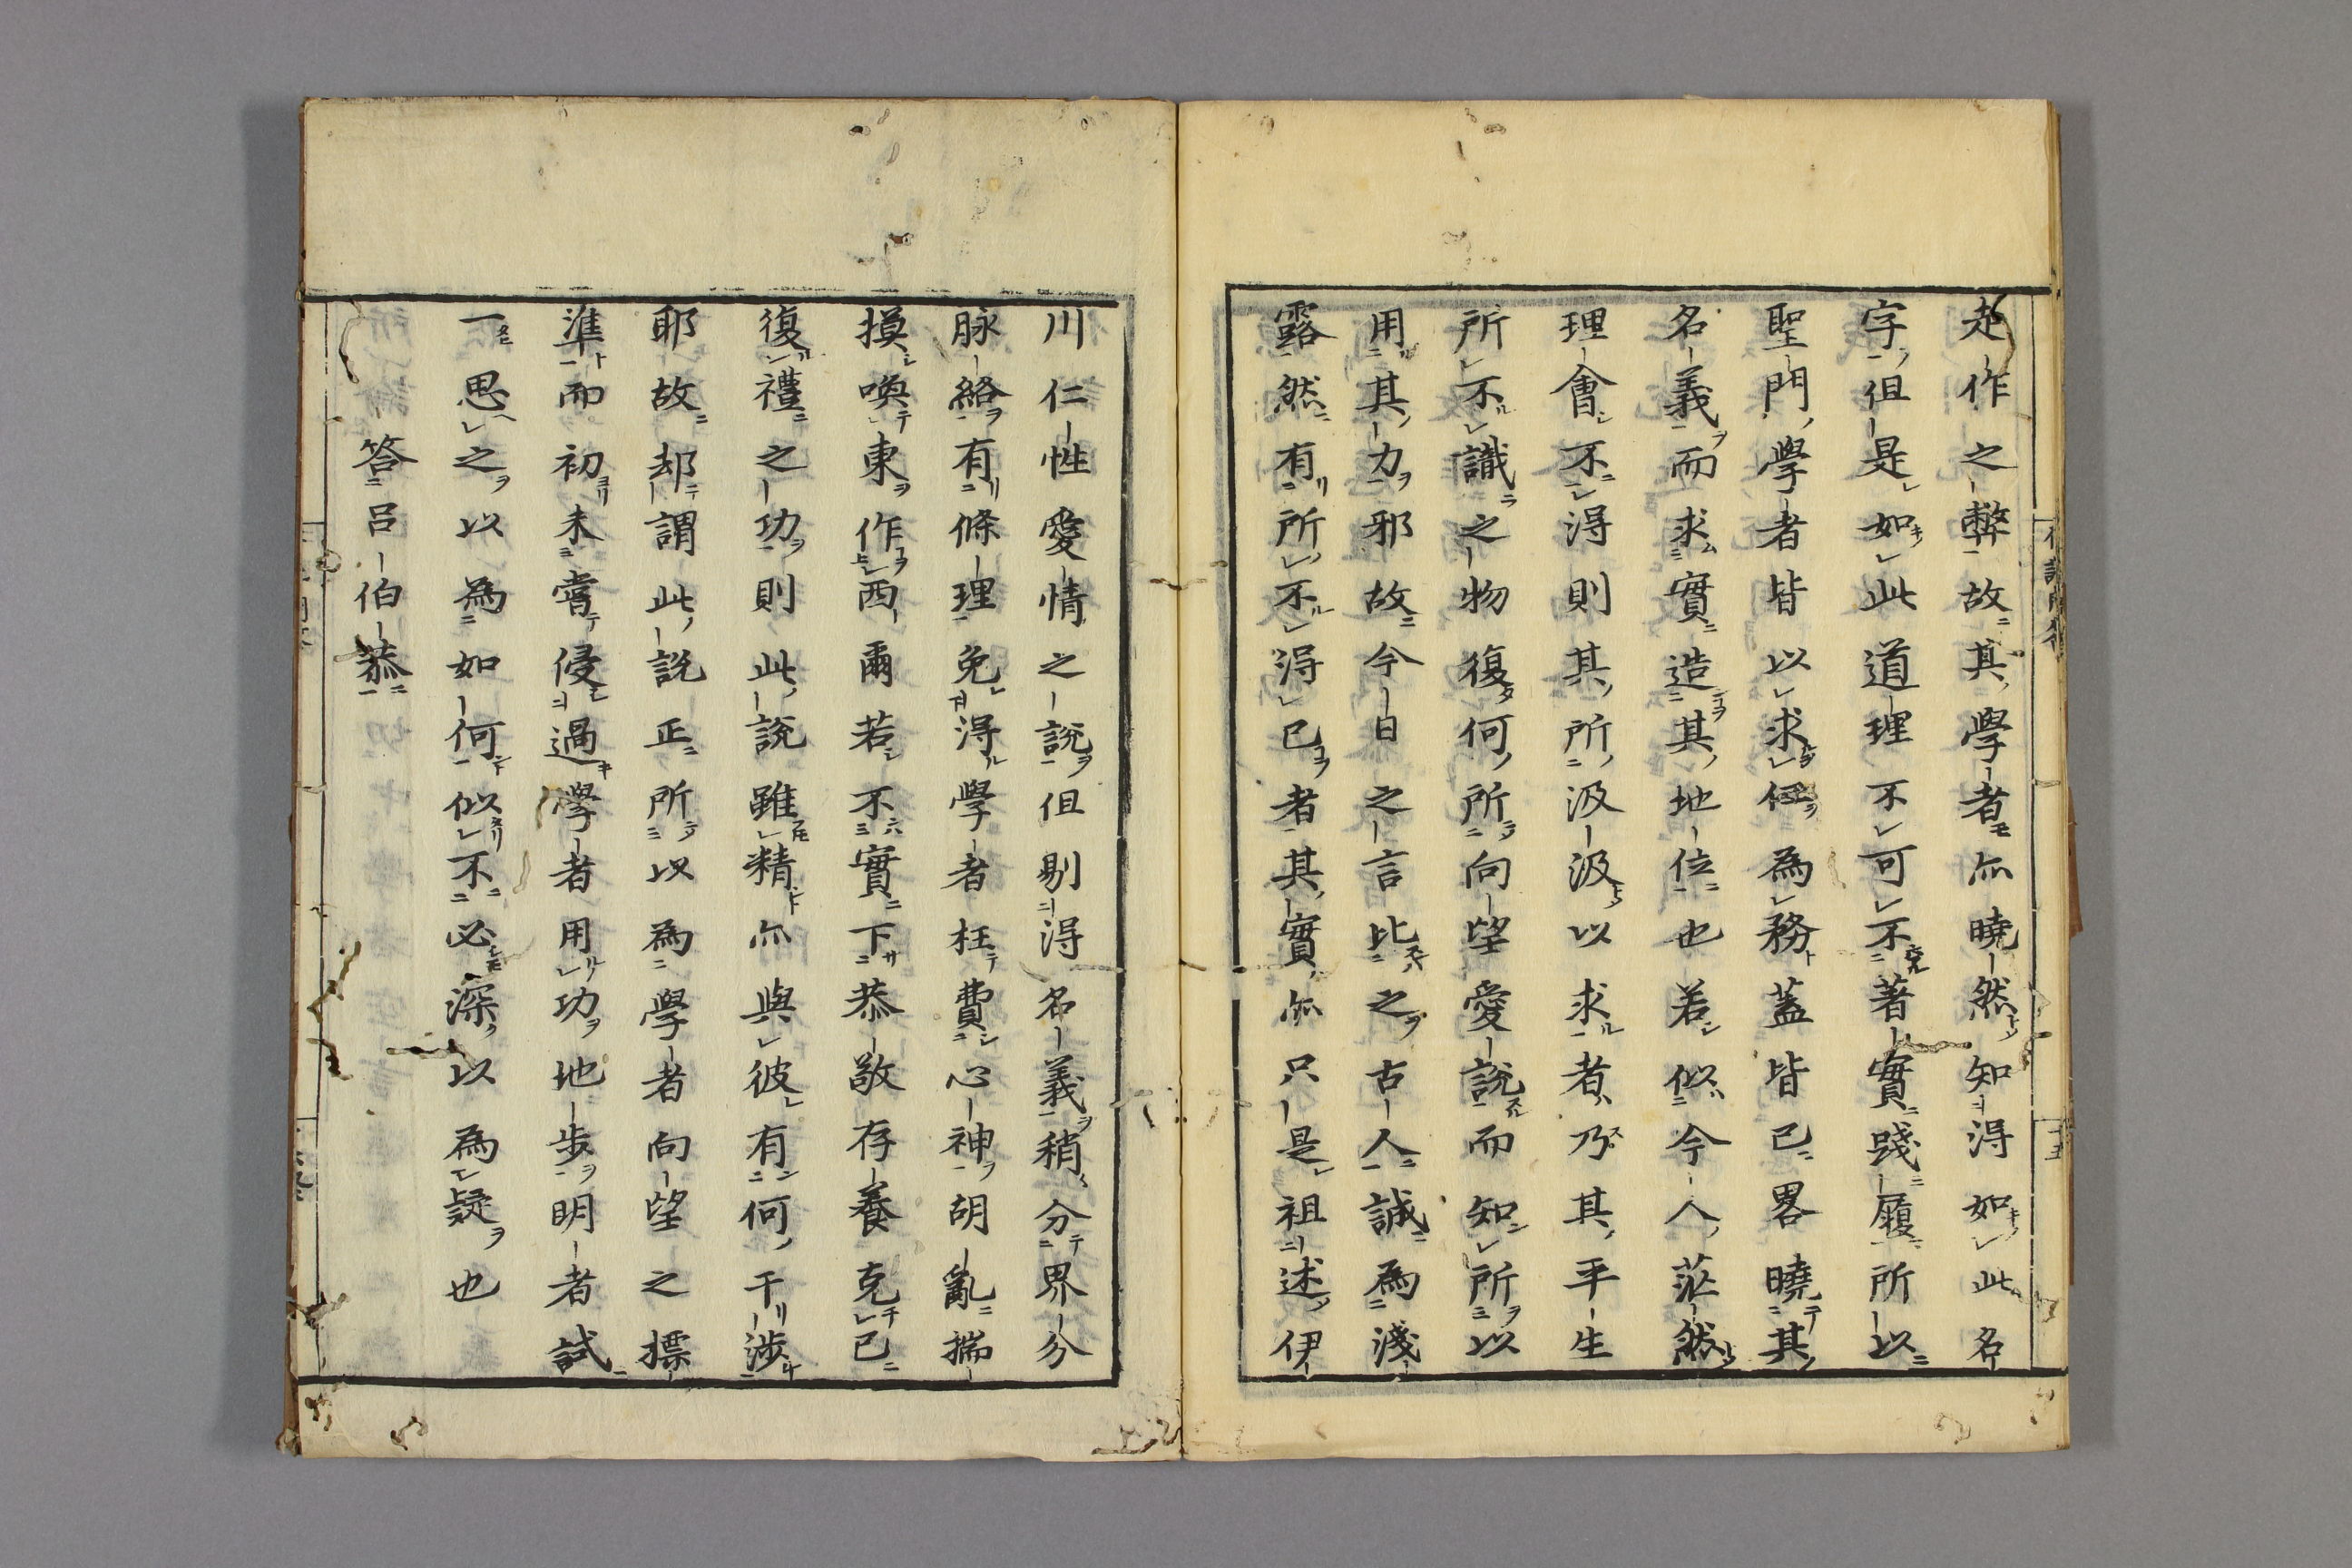 起作之弊故其學者亦曉然知得如此名
字但是如此道理不可不著實踐履所以
聖門學者皆以求仁為務蓋皆已畧曉其
名義而求實造其地位也若似今人茫然
理會不得則其所汲汲以求者乃其平生
所不識之物復何所向望愛說而知所以
用其力邪故今日之言比之古人誠為淺
露然有所不得已者其實亦只是祖述伊
川仁性愛情之說但剔得名義稍分界分
脉絡有條理免得學者枉費心神胡亂揣
摸喚東作西爾若不實下恭敬存養克己
復禮之功則此說雖精亦與彼有何干涉
耶故却謂此說正所以為學者向望之標
準而初未嘗侵過學者用功地步明者試
一思之以為如何似不必深以為疑也
答呂伯恭